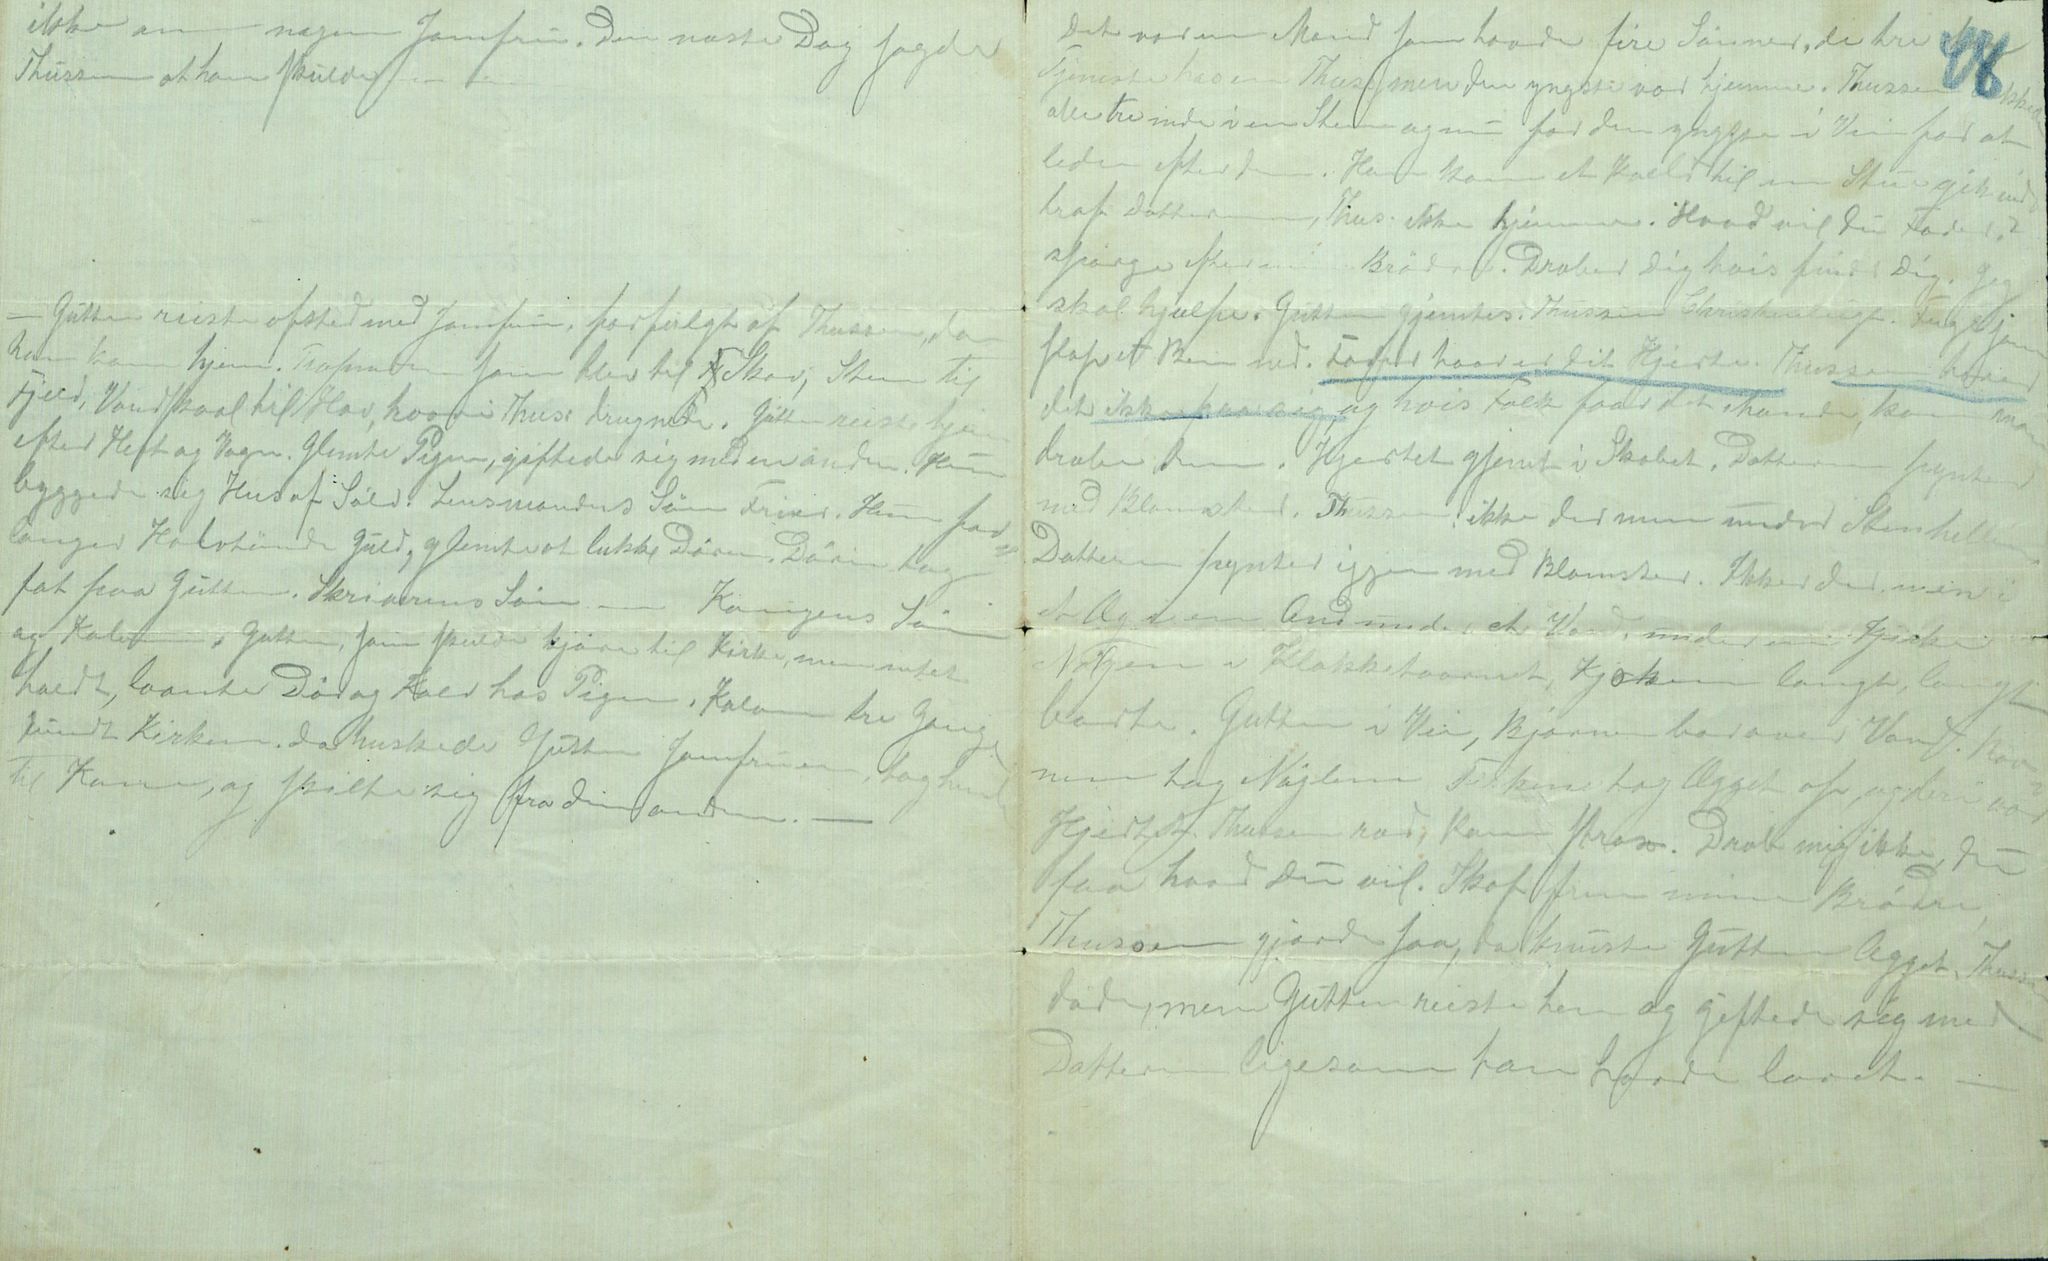 ikke om nogen Jomfru. Den næste Dag sagde
Thussen at han skulde — —
— Gutten reiste afsted med Jomfruen, forfulgt af Thussen, da
han kom hjem. som blev til Skov, Sten til
Fjeld, Vandskaal til Hav, hvori Thus. druknede. Gutten reiste hjem
efter Hest og Vogn. Glemte Pigen, giftede sig med en anden. Hun
byggede sig Hus af Sölv. Lensmandens Sön Frier. Hun for-
langer Halvtönde Guld, glemte at lukke Dören. Dören tog
fat paa Gutten. Skriverens Sön — Kongens Sön
og Kalven. Gutten, som skulde kjöre til Kirke, men intet
holdt, laante Dör og Kalv hos Pigen. Kalven tre Gange
rundt Kirken. da huskede Gutten Jomfruen, tog hende
til Kone, og skilte sig fra den anden. —
48
Det var en Mand som havde fire Sönner, de tre
Tjeneste hos en Thus, men den yngste var hjemme. Thussen
alle tre inde i en Sten og nu for den yngste i Vei for at
lede efter dem. Han kom et Kveld til en Stue gik ind
traf Datteren, Thus. ikke hjemme. Hvad vil du Fader?
spörge efter mine Brödre. Dræber Dig hvis finder Dig. Jeg
skal hjælpe. Gutten gjemtes. Thussen Fugl som
slap et Ben ned. Fader hvor er dit Hjerte. Thussen havde
det ikke paa sig, og hvis Folk faar det ihænde, kan man
dræbe dem. Hjertet gjemt i Skabet. Datteren pynter
med Blomster. Thussen: ikke der men under Stenhellen
Datteren pynter iggen med Blomster. Ikke der, men i
et Æg i en And under et Vand, under en Kirke
Nöglen i Klokketaarnet, Kirken langt, langt
borte. Gutten i Vei, Björnen bar over Vand. Rav-
nen tog Nöglen Fisken tog Ægget op, og deri var
Hjertet. Thussen ræd, kom strax. Dræb mig ikke, du
faa hvad du vil. Skaf frem mine Brödre,
Thussen gjorde saa, da knuste Gutten Ægget, Thussen
döde, men Gutten reiste hen og giftede sig med
Datteren ligesom han havde lovet. —